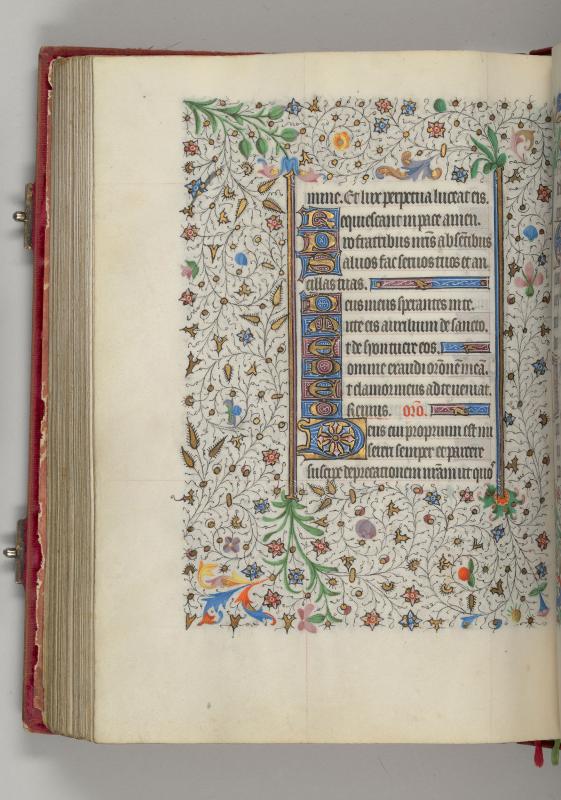 mine. Et lux perpetua luceat eis.
Requiescant in pace amen.
Pro fratribus nr̃is absentibus
Saluos fac seruos tuos et an
cillas tuas.
Deus meus sperantes in te.
Mitte eis auxilium de sancto.
Et de syon tuere eos.
Domine exaudi oronẽ meã.
Et clamor meus ad te ueniat.
Oremus. orõ.
Deus cui proprium est mi
sereri semper et parcere
suscipe deprecationem nr̃am ut quo